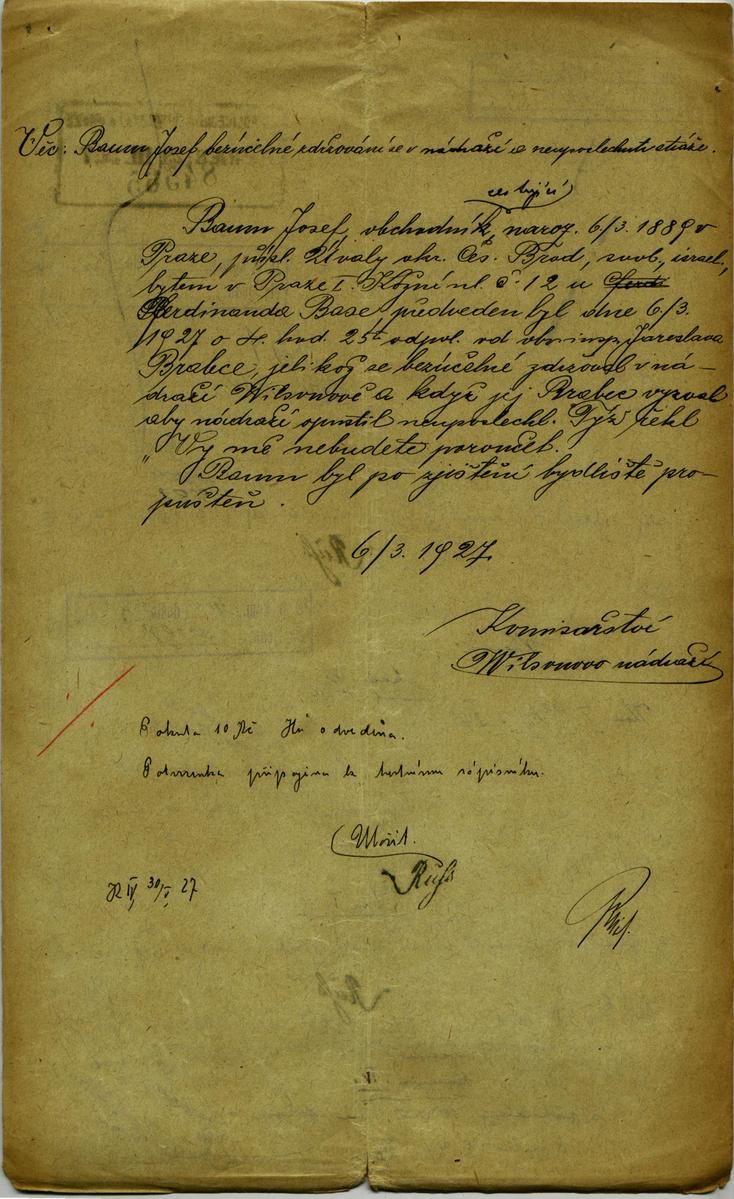 Věc: Baum Josef bezúčelné zdržování se v nádraží a neuposlechnutí stráže.
cestující
Baum Josef, obchodník, naroz. 6/3. 1889 v
Praze, přísl. Úvaly okr. Čes. Brod, svob., israel.,
bytem v Praze I. Kozí ul. č. 12 u
Ferdinanda Base, předveden byl dne 6/3.
1927 o 4. hod. 25 odpol. od obr. insp. Jaroslava
Brabce, jelikož se bezúčelně zdržoval v ná-
draží Wilsonově a když jej Brabec vyzval
aby nádraží opustil neuposlechl. Týž řekl
„Vy mě nebudete poroučet.
Baum byl po zjištění bydliště pro-
puštěn.
6/3. 1927
Komisařství
Wilsonovo nádraží
Pokuta 10 Kč odvedena.
Potvrzenka připojena k trestnímu zápisníku.
Uložit.
30/5 27